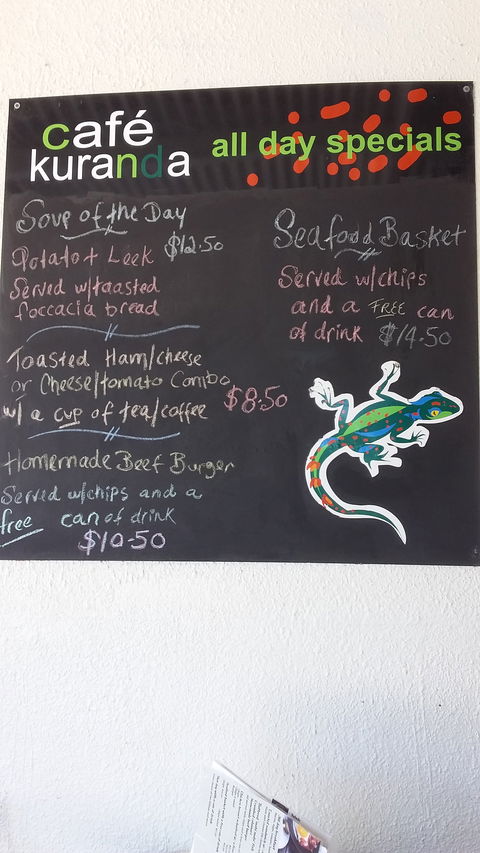 café
kuranda
all day specials
Soup of the Day
Potato + Leek $12.50
Served w/toasted
foccacia bread
Toasted Ham/cheese
or Cheese/tomato Combo
w/ a cup of tea/coffee $8.50
Homemade Beef Burger
Served w/chips and a
free can of drink
$10.50
Seafood Basket
Served w/chips
and a FREE can
of drink $14.50